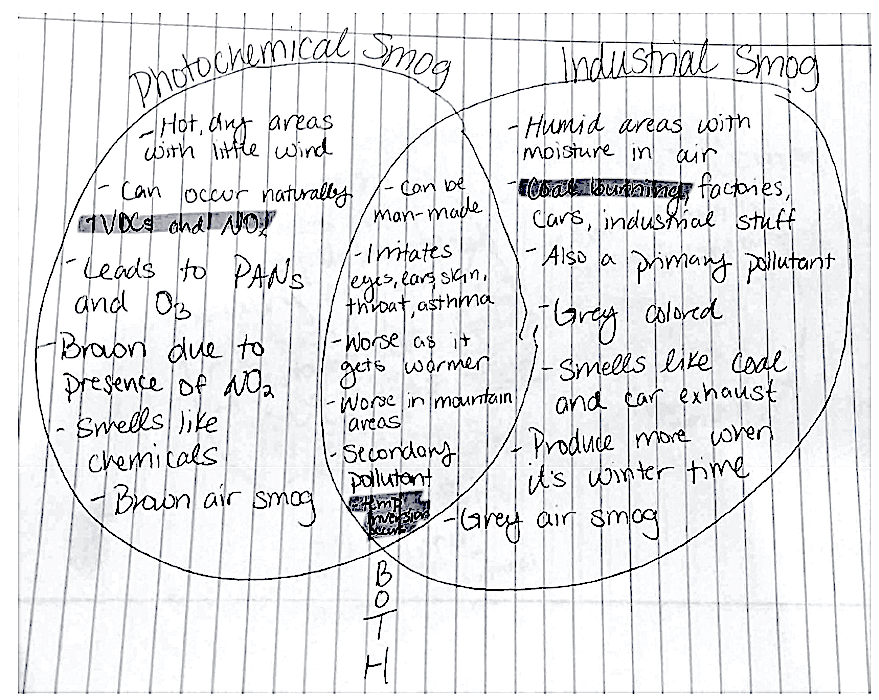 Photochemical Smog
- Hot, dry areas
with little wind
- Can occur naturally
↑VOCs and NO₂
- Leads to PANs
and O₃
- Brown due to
presence of NO₂
- Smells like
chemicals
- Brown air smog
- Can be
man-made
- Irritates
eyes, ears, skin,
throat, asthma
- Worse as it
gets warmer
- Worse in mountain
areas
- Secondary
pollutant
- temp
inversion
BOTH
Industrial Smog
- Humid areas with
moisture in air
- Coal burning, factories,
cars, industrial stuff
- Also a primary pollutant
- Grey colored
- Smells like coal
and car exhaust
- Produce more when
it's winter time
- Grey air smog